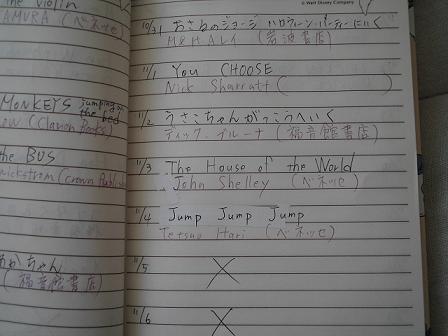 the Violin
AMURA (ベネッセ)
MONKEYS jumping on
the bed
(Clarion Books)
the BUS
ickstrom (Crown
あかちゃん
(福音館書店)
© Walt Disney Company
10/31 おさるのジョージ ハロウィーン・パーティーにいく
M & H.A.レイ (岩波書店)
11/1 You CHOOSE
Nick Sharratt (
11/2 うさこちゃんがっこうへいく
ディック・ブルーナ (福音館書店)
11/3 The House of the World
John Shelley (ベネッセ)
11/4 Jump Jump Jump
Tetsuo Hari (ベネッセ)
11/5 ×
11/6 ×